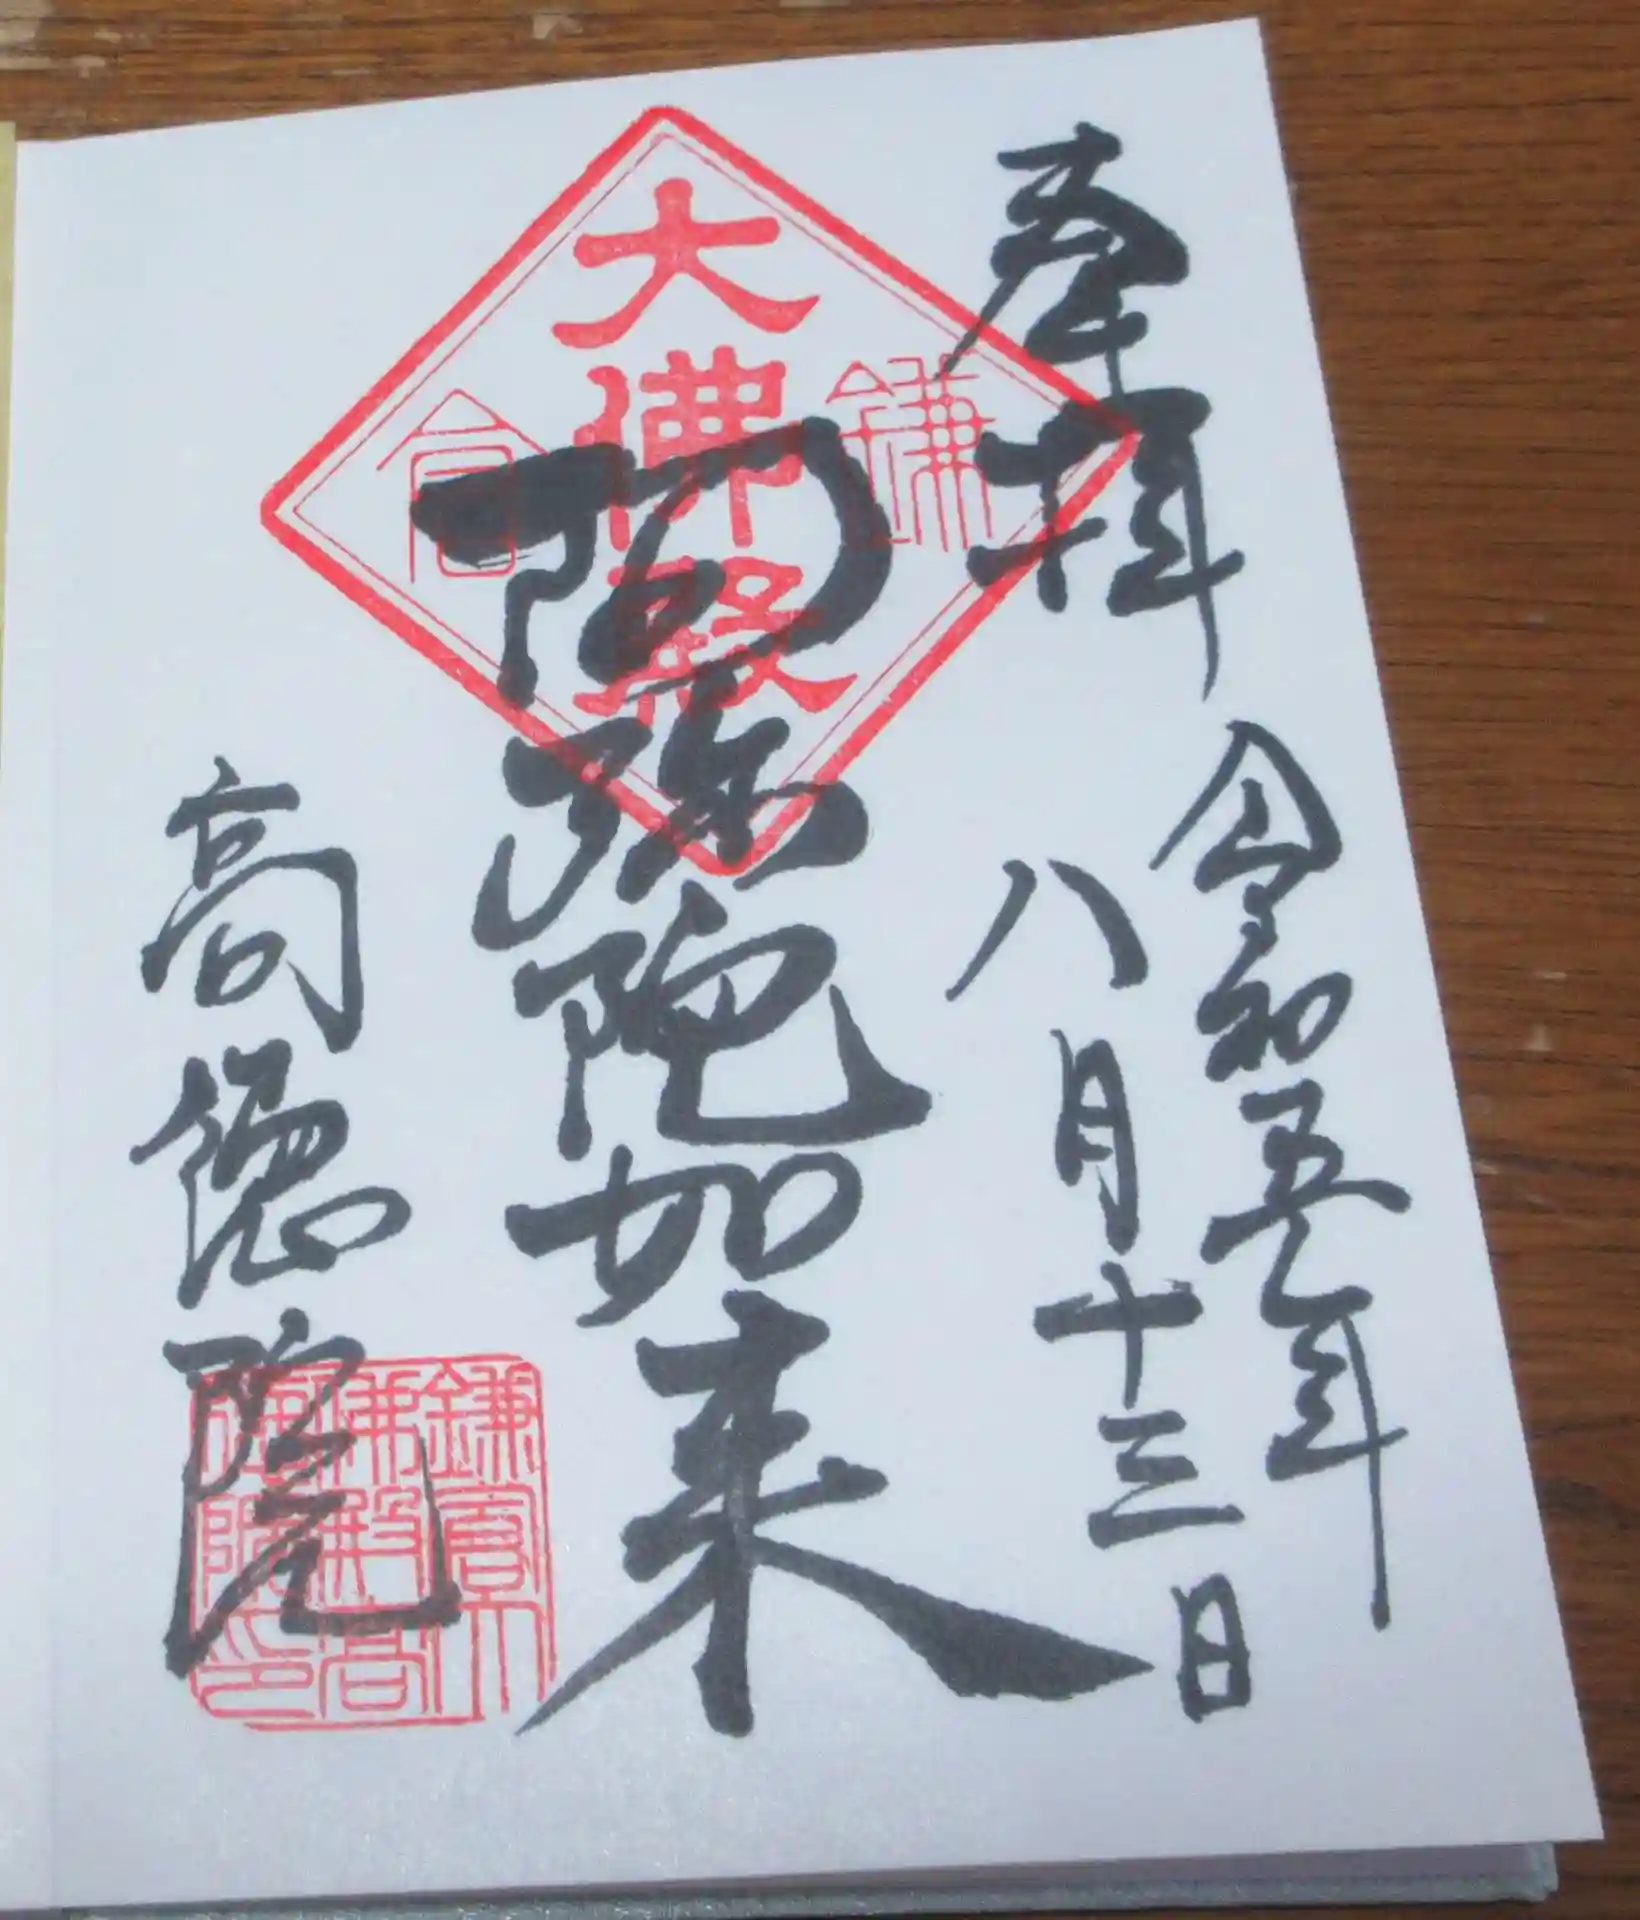 奉拝
令和五年
八月十三日
鎌倉
大佛殿
阿弥陀如来
高徳院
鎌倉大
佛殿高
徳院印